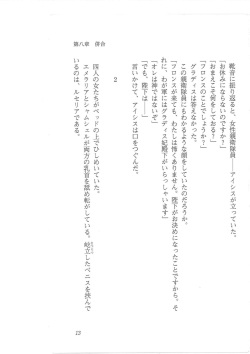 第八章　併合
靴音に振り返ると、女性親衛隊員――アイシスが立っていた。
「お休みにならないのですか？」
「おまえこそ何をしておる？」
「フロンスのことでしょうか？」
グラディスは答えなかった。
この親衛隊員にもわかるような顔をしていたのだろうか。
「フロンスが来ても、わたしは怖くありません。陛下がお決めになったことですから。そ
れに、わが軍にはグラディス妃殿下がいらっしゃいます」
「オレは神ではないぞ」
「でも、陛下は――」
言いかけて、アイシスは口をつぐんだ。
2
四人の女たちがベッドの上でひしめいていた。
エメラリアとシャムシェルが両方の乳首を舐め転がしている。屹立したペニスを挟んで
いるのは、ルセリアである。
13